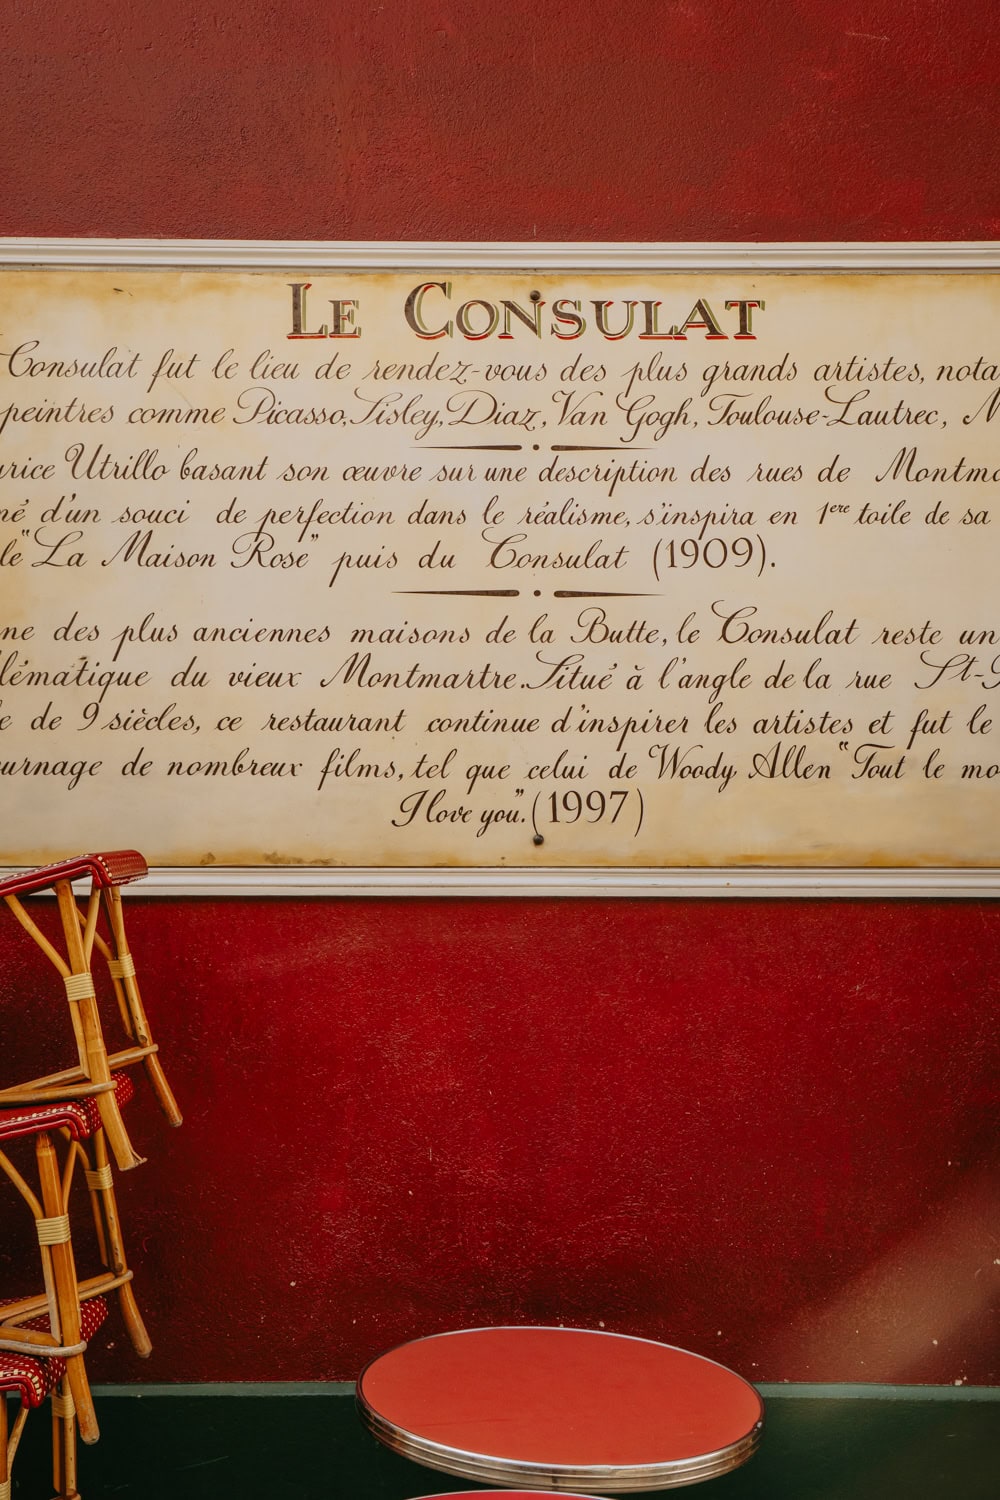 LE CONSULAT
Consulat fut le lieu de rendez-vous des plus grands artistes, nota
peintres comme Picasso, Sisley, Diaz, Van Gogh, Toulouse-Lautrec, M
urice Utrillo basant son œuvre sur une description des rues de Montma
né d'un souci de perfection dans le réalisme, s'inspira en 1ere toile de sa
le "La Maison Rose" puis du Consulat (1909).
ne des plus anciennes maisons de la Butte, le Consulat reste un
lématique du vieux Montmartre. Situé à l'angle de la rue St-
e de 9 siècles, ce restaurant continue d'inspirer les artistes et fut le
urnage de nombreux films, tel que celui de Woody Allen "Tout le mo
I love you". (1997)